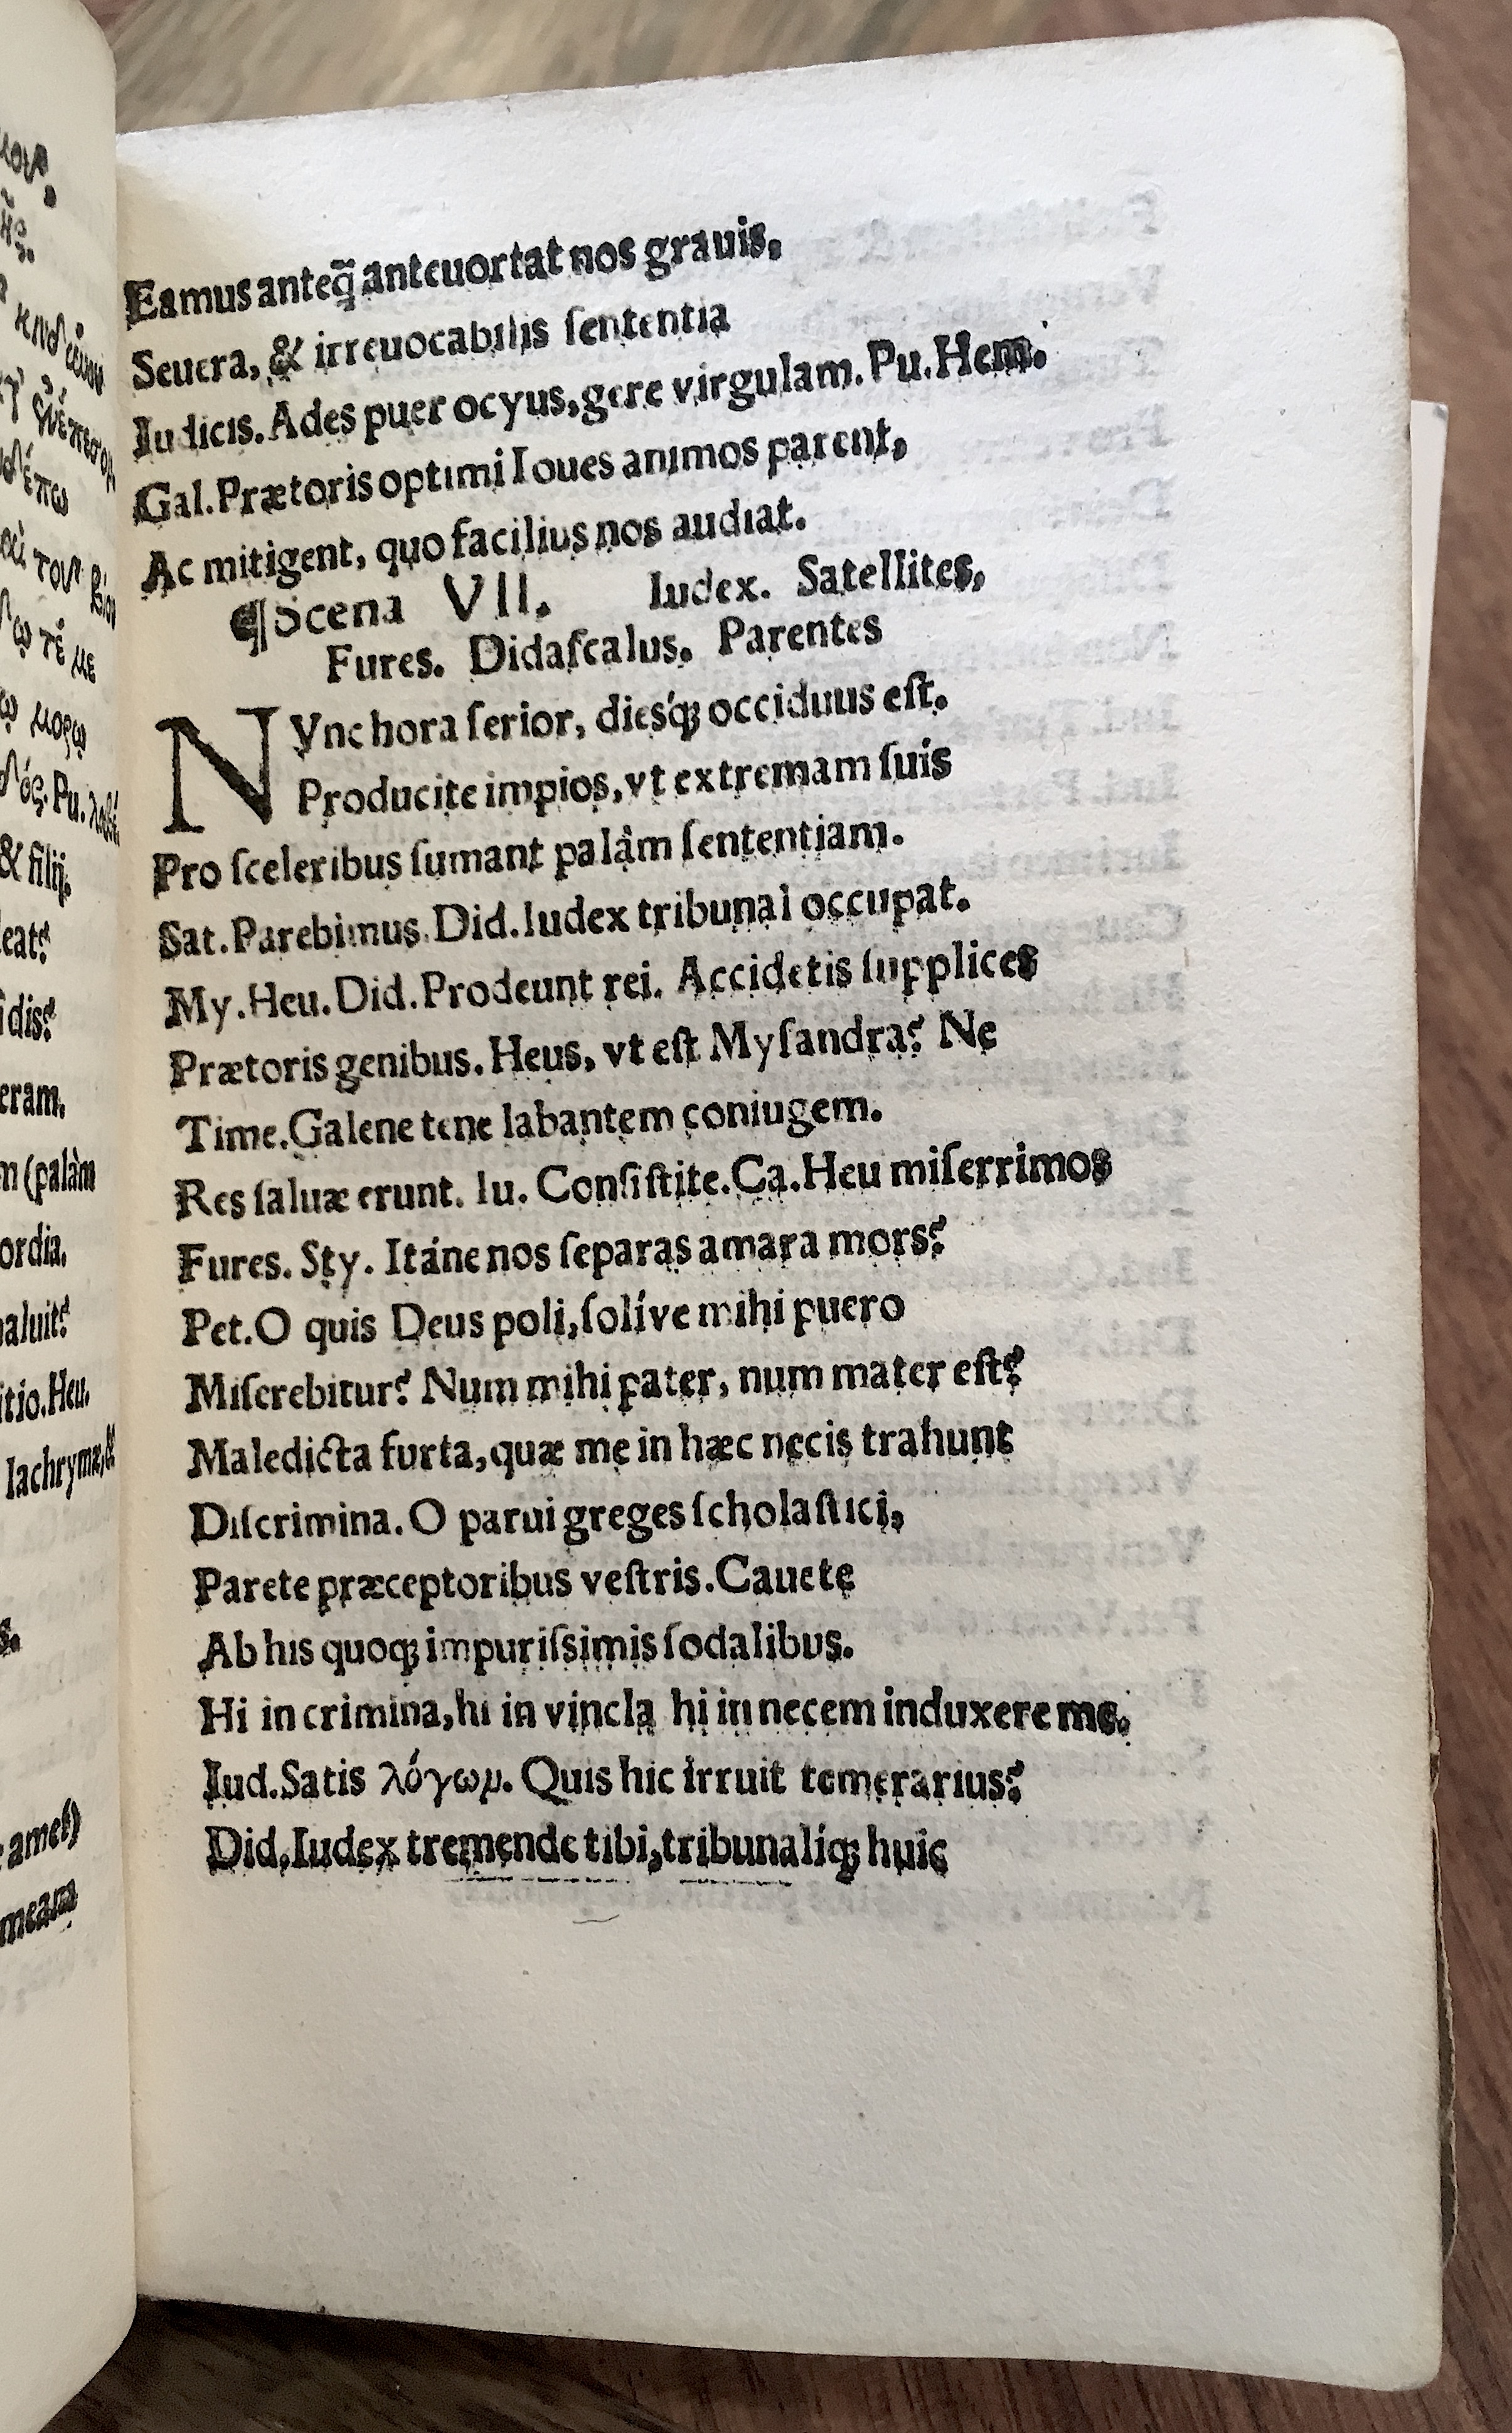 Eamus anteq̃ anteuortat nos grauis,
Seuera, & irreuocabilis ſententia
Iudicis. Ades puer ocyus, gere virgulam. Pu. Hem.
Gal. Prætoris optimi Ioues animos parent,
Ac mitigent, quo facilius nos audiat.
¶ Scena VII. Iudex. Satellites,
Fures. Didaſcalus. Parentes
NVnc hora ſerior, diesq́; occiduus eſt.
Producite impios, vt extremam ſuis
Pro ſceleribus ſumant palàm ſententiam.
Sat. Parebimus. Did. Iudex tribunal occupat.
My. Heu. Did. Prodeunt rei. Accidetis ſupplices
Prætoris genibus. Heus, vt eſt Myſandra? Ne
Time. Galene tene labantem coniugem.
Res ſaluæ erunt. Iu. Conſiſtite. Ca. Heu miſerrimos
Fures. Sty. Itáne nos ſeparas amara mors?
Pet. O quis Deus poli, ſolíve mihi puero
Miſerebitur? Num mihi pater, num mater eſt?
Maledicta furta, quæ me in hæc necis trahunt
Diſcrimina. O parui greges ſcholaſtici,
Parete præceptoribus veſtris. Cauete
Ab his quoq; impuriſsimis ſodalibus.
Hi in crimina, hi in vincla hi in necem induxere me.
Iud. Satis λόγωμ. Quis hic irruit temerarius?
Did. Iudex tremende tibi, tribunalíq; huic
& filij.
eram.
(palàm
ordia.
Heu.
lachrymæ, &
amet)
meam